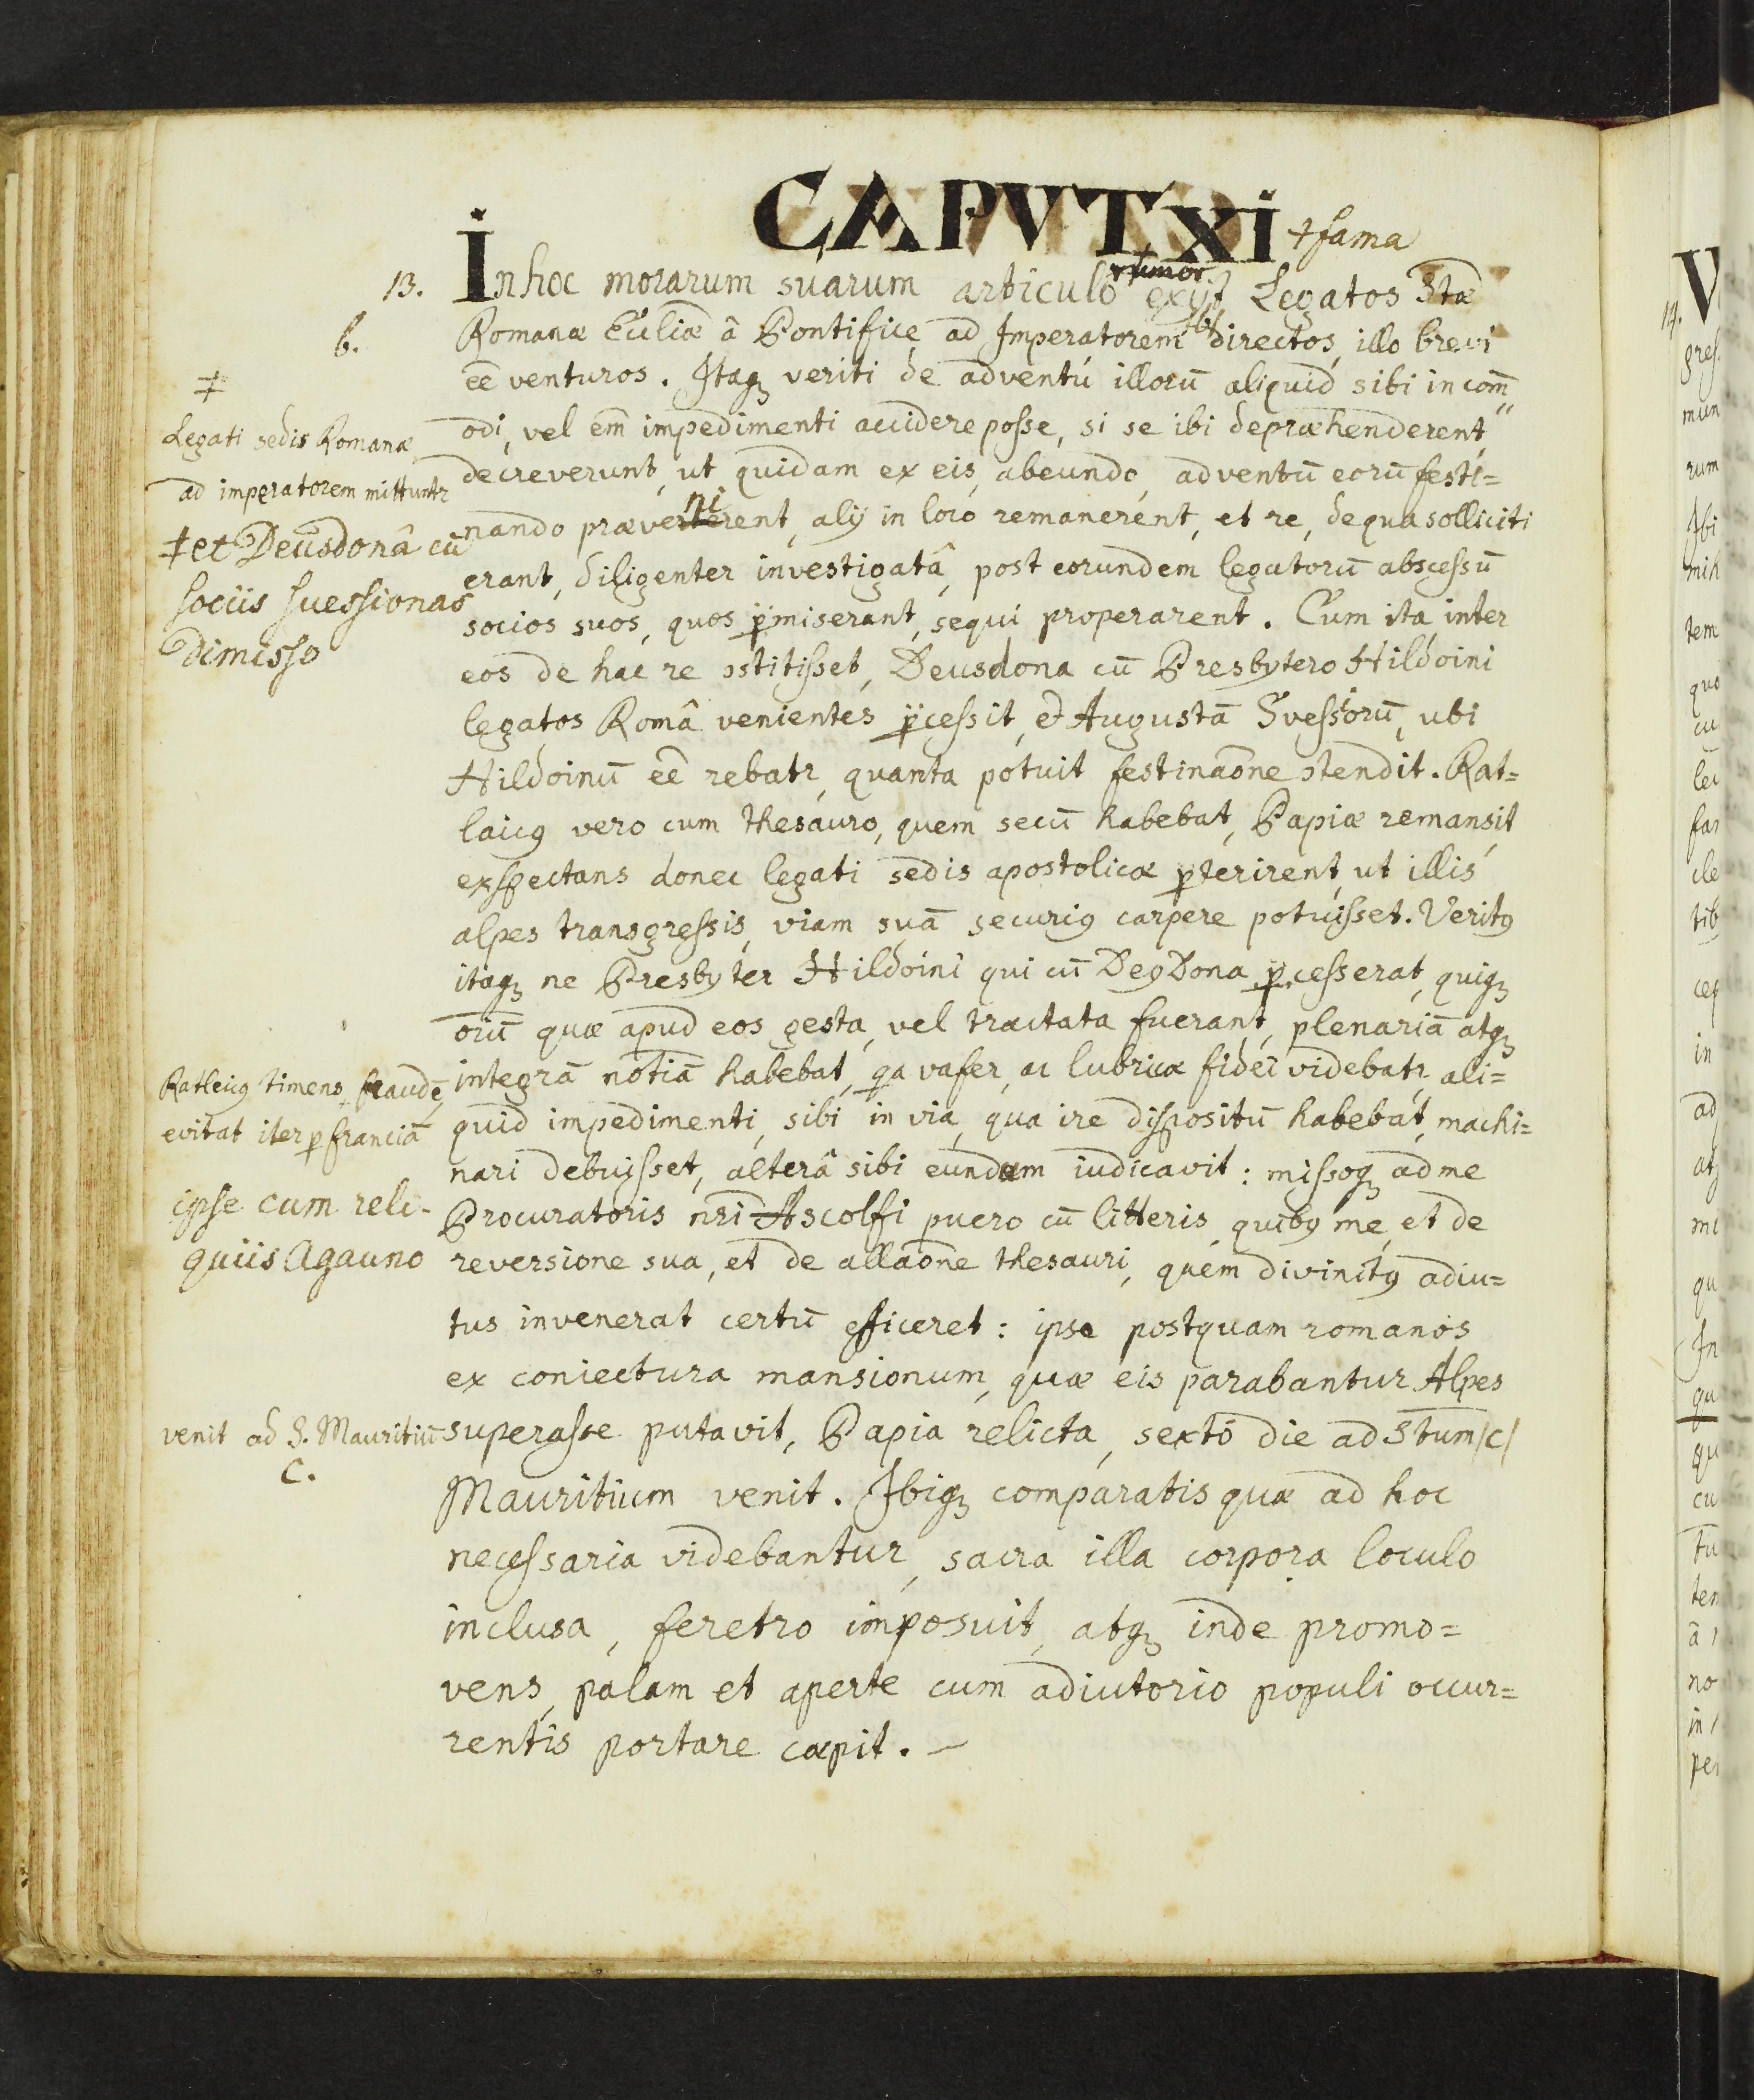 CAPVT XI
‡ fama
rumor
13. In hoc morarum suarum articulo exijt Legatos Stæ
b. Romanæ Eccliæ â Pontifice ad Imperatorem directos, illo brevi
eē venturos. Itaqꝫ veriti de adventú illorū aliquid sibi in com̄
odi, vel em̄ impedimenti accidere posse, si se ibi depræhenderent,
decreverunt, ut quidam ex eis, abeundo, adventū eorū festi=
ni
nando præverterent, alij in loco remanerent, et re, de qua solliciti
erant, diligenter investigatâ, post eorundem legatorū abscessū
socios suos, quos p̄miserant, sequi properarent. Cum ita inter
eos de hac re ↄstitisset, Deusdona cū Presbytero Hildoini
legatos Româ venientes p̄cessit, et Augustā Svessiorū, ubi
Hildoinū eē rebatr, quanta potuit festinaōne ↄtendit. Rat=
laicꝰ vero cum thesauro, quem secū habebat, Papiæ remansit
exspectans donec legati sedis apostolicæ p̄terirent, ut illis
alpes transgressis, viam suā securiꝰ carpere potuisset. Veritꝰ
itaqꝫ ne Presbyter Hildoini qui cū DeꝰDona p̄cesserat, quiqꝫ
oīū quæ apud eos gesta, vel tractata fuerant, plenariā atqꝫ
integrā notiā habebat, qa vafer, ac lubricæ fidei videbatr, ali=
quid impedimenti, sibi in via, qua ire dispositū habebat, machi=
nari debuisset, alterâ sibi eundam iudicavit: missoqꝫ ad me
Procuratoris nr̄i Ascolfi puero cū litteris, quibꝰ me, et de
reversione sua, et de allaōne thesauri, quem divinitꝰ adiu=
tus invenerat certū efficeret: ipse postquam romanos
ex coniectura mansionum, quæ eis parabantur Alpes
superasse putavit, Papia relicta, sexto die ad Stum /c/
Mauritium venit. Ibiqꝫ comparatis quæ ad hoc
necessaria videbantur, sacra illa corpora loculo
inclusa, feretro imposuit, atqꝫ inde promo=
vens, palam et aperte cum adiutorio populi occur=
rentis portare cœpit. —
‡
Legati sedis Romanæ
ad imperatorem mittuntr
‡ et Deusdonâ cū
sociis suessionas
dimisso
Ratleicꝰ timens fraudē,
evitat iter p franciā
ipse cum reli-
quiis Agauno
venit ad S. Mauritiū
c.